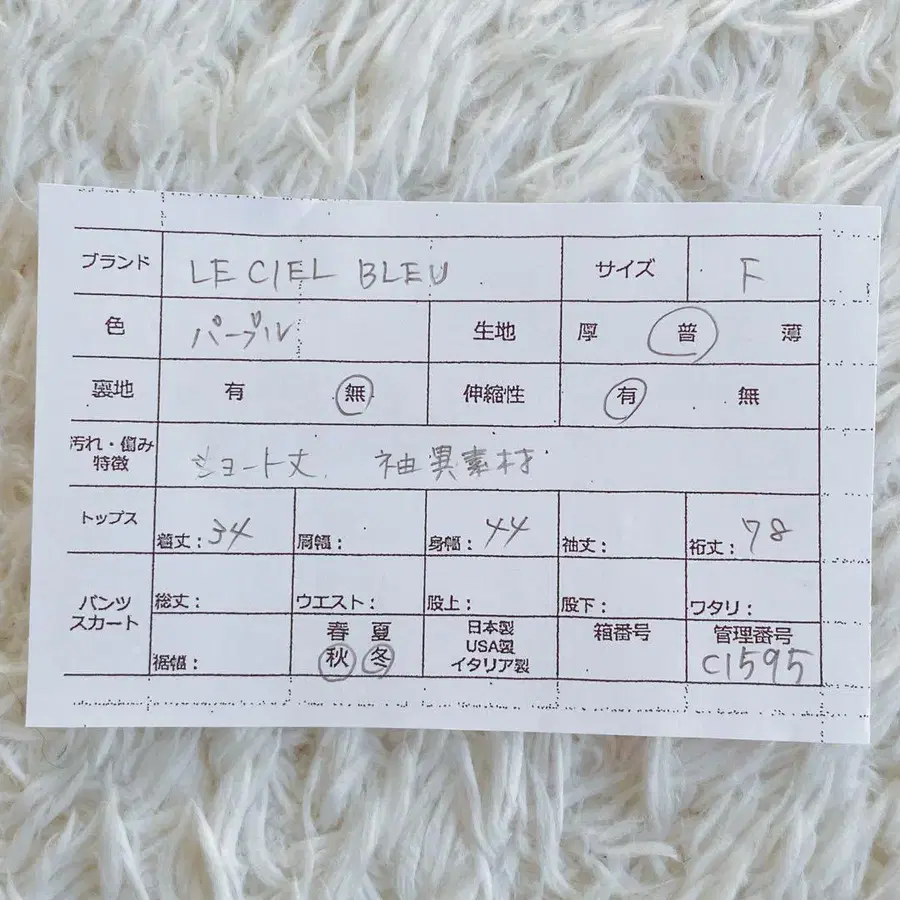 ブランド LE CIEL BLEU サイズ F
色 パープル 生地 厚 普 薄
裏地 有 無 伸縮性 有 無
汚れ・傷み
特徴 ショート丈. 袖異素材
トップス 着丈：34 肩幅： 身幅：44 袖丈： 裄丈：78
パンツ
スカート 総丈： ウエスト： 股上： 股下： ワタリ：
裾幅： 春 夏
秋 冬
日本製
USA製
イタリア製
箱番号
管理番号
C1595